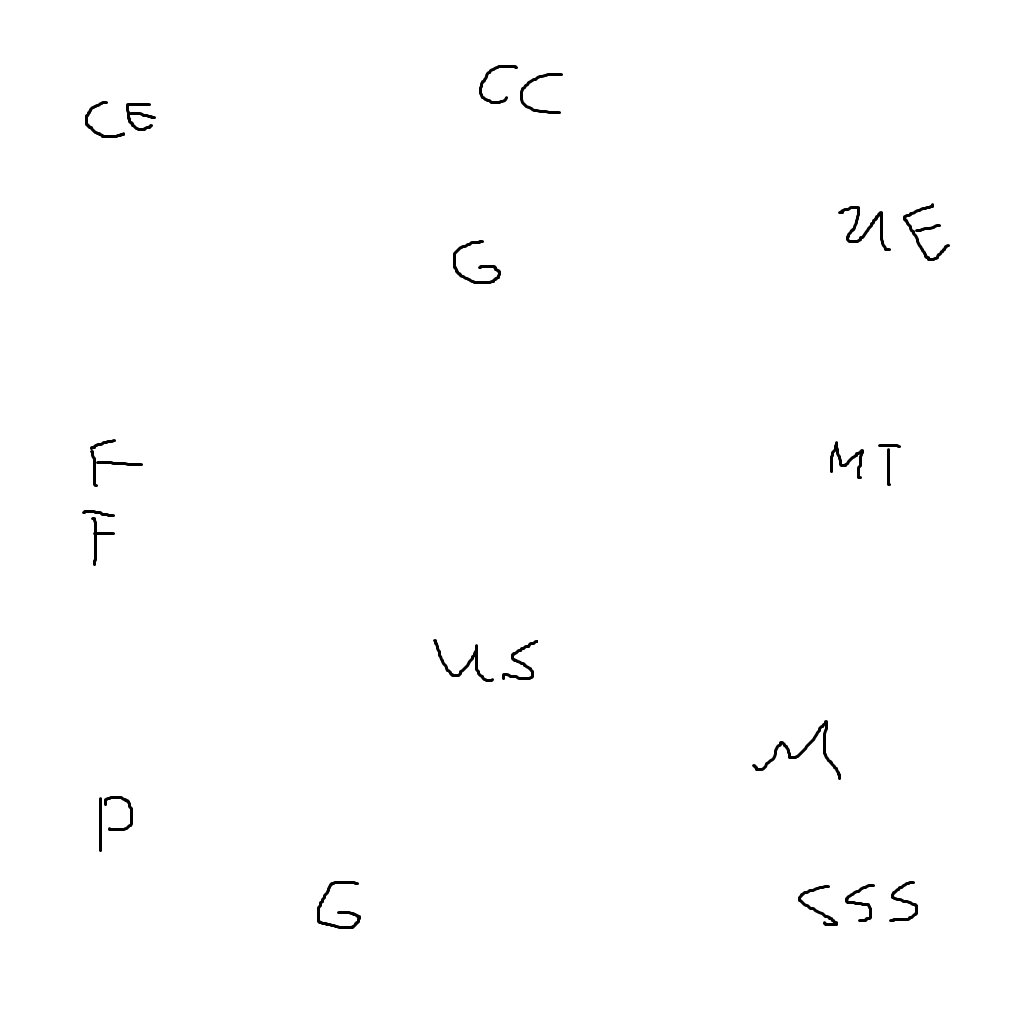 CC
CE
UE
G
F
MT
F
US
M
P
G
SSS